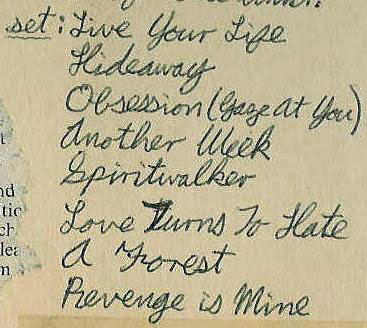 set: Live Your Life
Hideaway
Obsession (Gaze At You)
Another Week
Spiritwalker
Love Turns To Hate
A Forest
Revenge is Mine
nd
tio
ch
lea
m